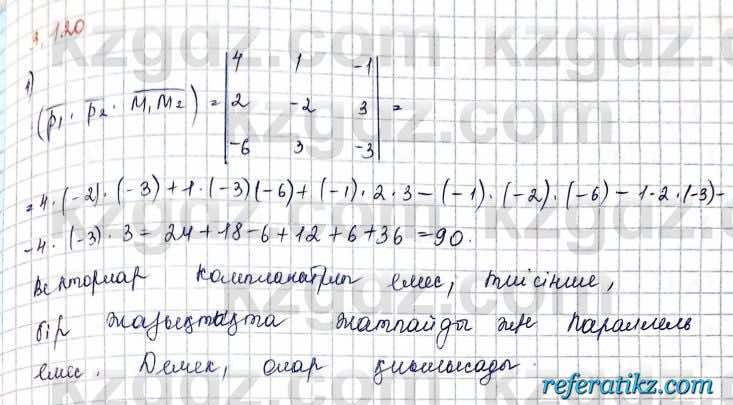 3.120
1)
(p̄₁ · p̄₂ · M₁M₂) = | 4 1 -1 |
| 2 -2 3 | =
| -6 3 -3 |
= 4 · (-2) · (-3) + 1 · (-3)(-6) + (-1) · 2 · 3 - (-1) · (-2) · (-6) - 1 · 2 · (-3) -
- 4 · (-3) · 3 = 24 + 18 - 6 + 12 + 6 + 36 = 90.
Векторлар компланарлы емес, тиісінше,
бір жазықтықта жатпайды және параллель
емес. Демек, олар қиылысады.
kzgdz.com
referatikz.com